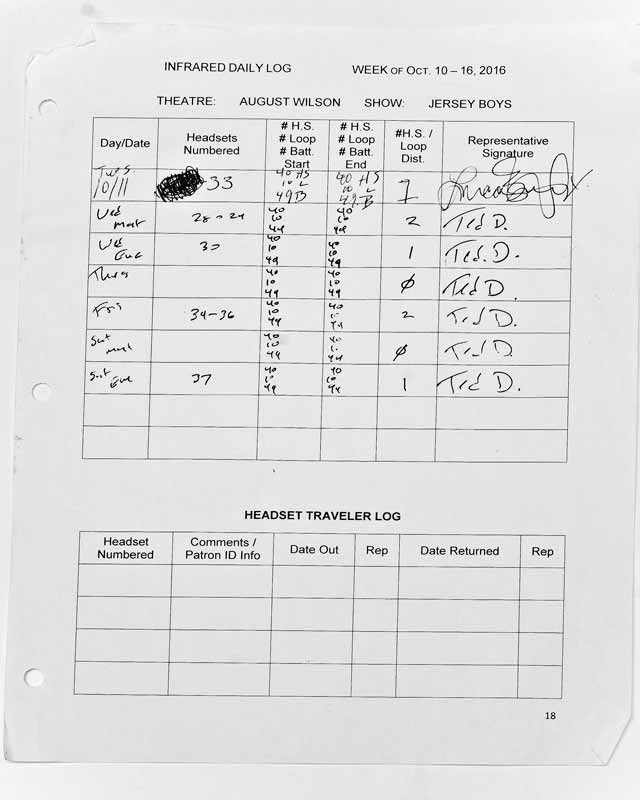 INFRARED DAILY LOG WEEK OF OCT. 10 – 16, 2016
THEATRE: AUGUST WILSON SHOW: JERSEY BOYS
Day/Date Headsets Numbered # H.S. # Loop # Batt. Start # H.S. # Loop # Batt. End #H.S. / Loop Dist. Representative Signature
Tues 10/11 33 40 HS 10 L 49 B 40 HS 10 L 49 B 1
Wed mat 40 10 49 40 10 49 2 Ted D.
Wed Eve 40 10 49 40 10 49 1 Ted. D.
Thurs 40 10 49 40 10 49 Ø Ted D.
Fri 34-36 40 10 49 40 49 2 Ted D.
Sat mat 40 10 49 40 49 Ø Ted D.
Sat Eve 37 40 10 49 40 10 49 1 Ted D.
HEADSET TRAVELER LOG
Headset Numbered Comments / Patron ID Info Date Out Rep Date Returned Rep
18